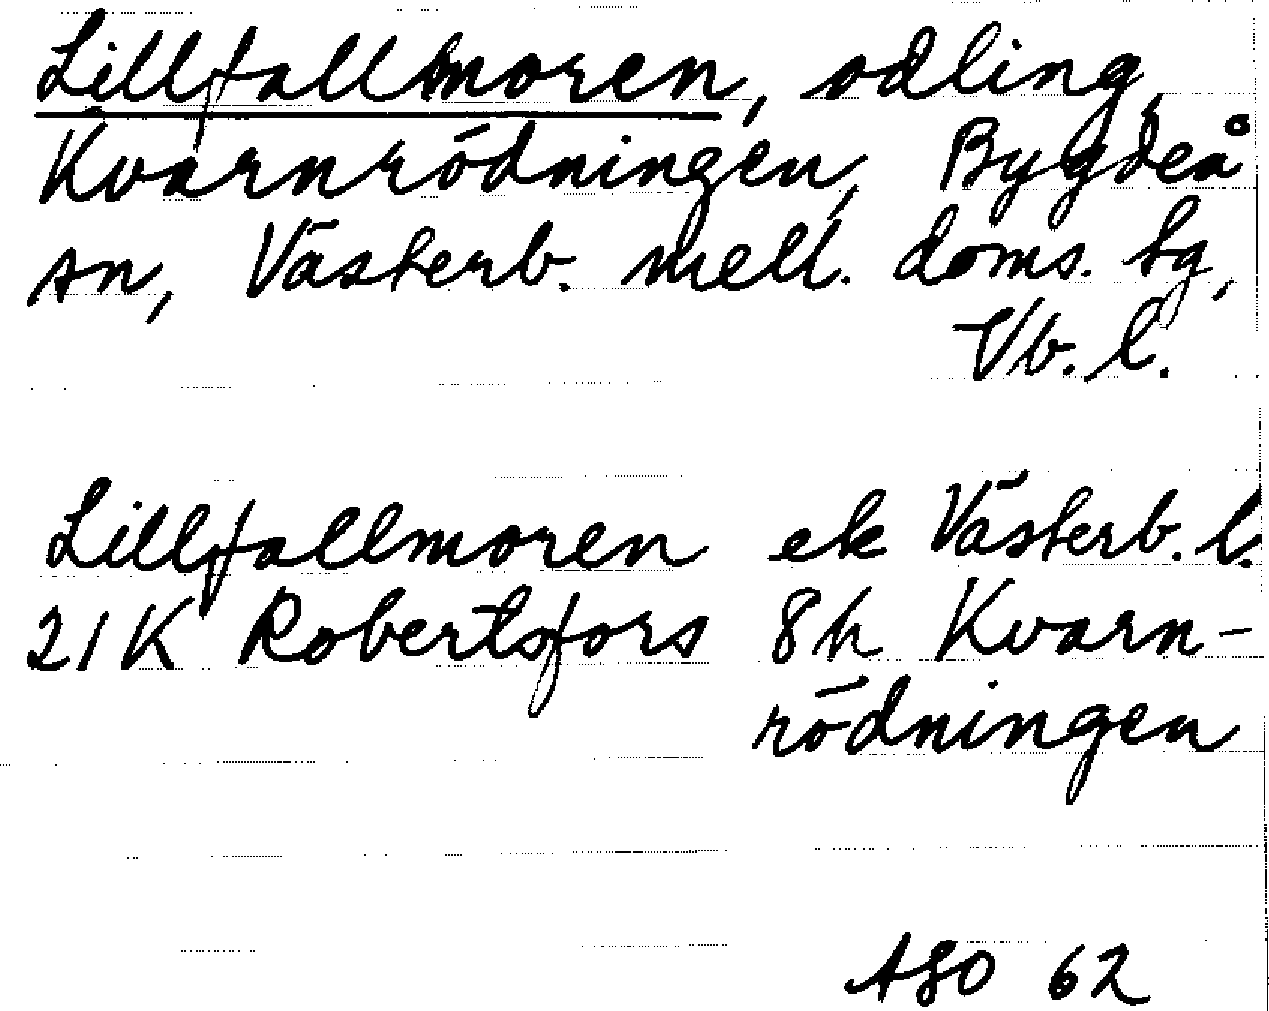 Lillfallmoren, odling,
Kvarnrödningen, Bygdeå
sn, Västerb. mell. doms. tg,
Vb. l.
Lillfallmoren ek Västerb. l.
21K Robertsfors 8h Kvarn-
rödningen
ASO 62